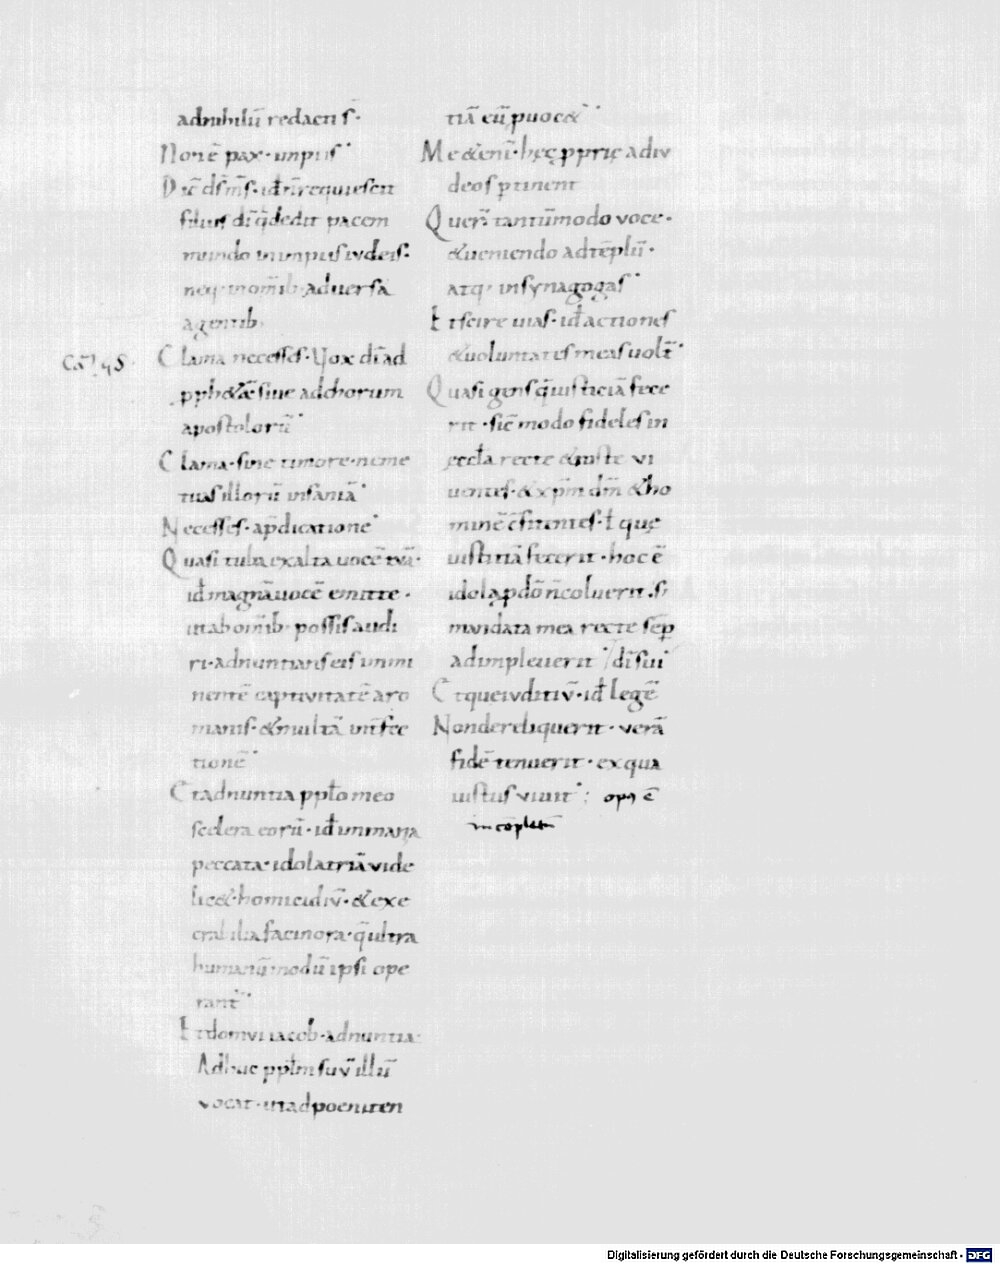 adnihilū redacti s̄·
Non ē pax· impiis·
Dic̄ dn̄s m̄s· id ñ requiescit
filius dī q̄ dedit pacem
mundo in impiis iudeis·
neq· in om̄ib· adversa
agentib·
Clama ne cesses· Vox dī ad
pph&ā sive ad chorum
apostolorū·
Clama· sine timore· ne me
tuas illorū insaniā·
Ne cesses· a p̄dicatione·
Quasi tuba exalta vocē tuā·
id magnā vocē emitte·
ita ut om̄ib· possis audi
ri· adnuntians eis immi
nentē captivitatē a ro
manis· & multā int̄fec
tionē·
Et adnuntia pplo meo
scelera eorū· id immania
peccata· idolatriā vide
lic& homicidiū· & exe
crabilia facinora· q̄ ultra
humanū modū ipsi ope
rant̄·
Et domui iacob· adnuntia·
Adhuc pplm suū illū
vocat· ut ad poeniten
tiā eū p̄voc&·
Me &enī· hęc pprię ad iu
deos ptinent
Querт tantūmodo voce·
& veniendo ad tēplū·
atq· in synagogas·
Et scire vias· id actiones
& voluntates meas volт·
Quasi gens q̄ iusticiā fece
rit· sic modo fideles in
ęccła recte & iuste vi
ventes· & xp̄m dm̄ & ho
minē c̄fitentes· ł quę
iustitiā fecerit· hoc ē
idola p dō n̄ coluerit· s;
mandata mea recte sēp
adimpleverit· / dī sui·
Et que iuditiū· id legē
Non dereliquerit· verā
fidē tenuerit· ex qua
iustus vivit·; op9 ē
incōpletū
Digitalisierung gefördert durch die Deutsche Forschungsgemeinschaft - DFG